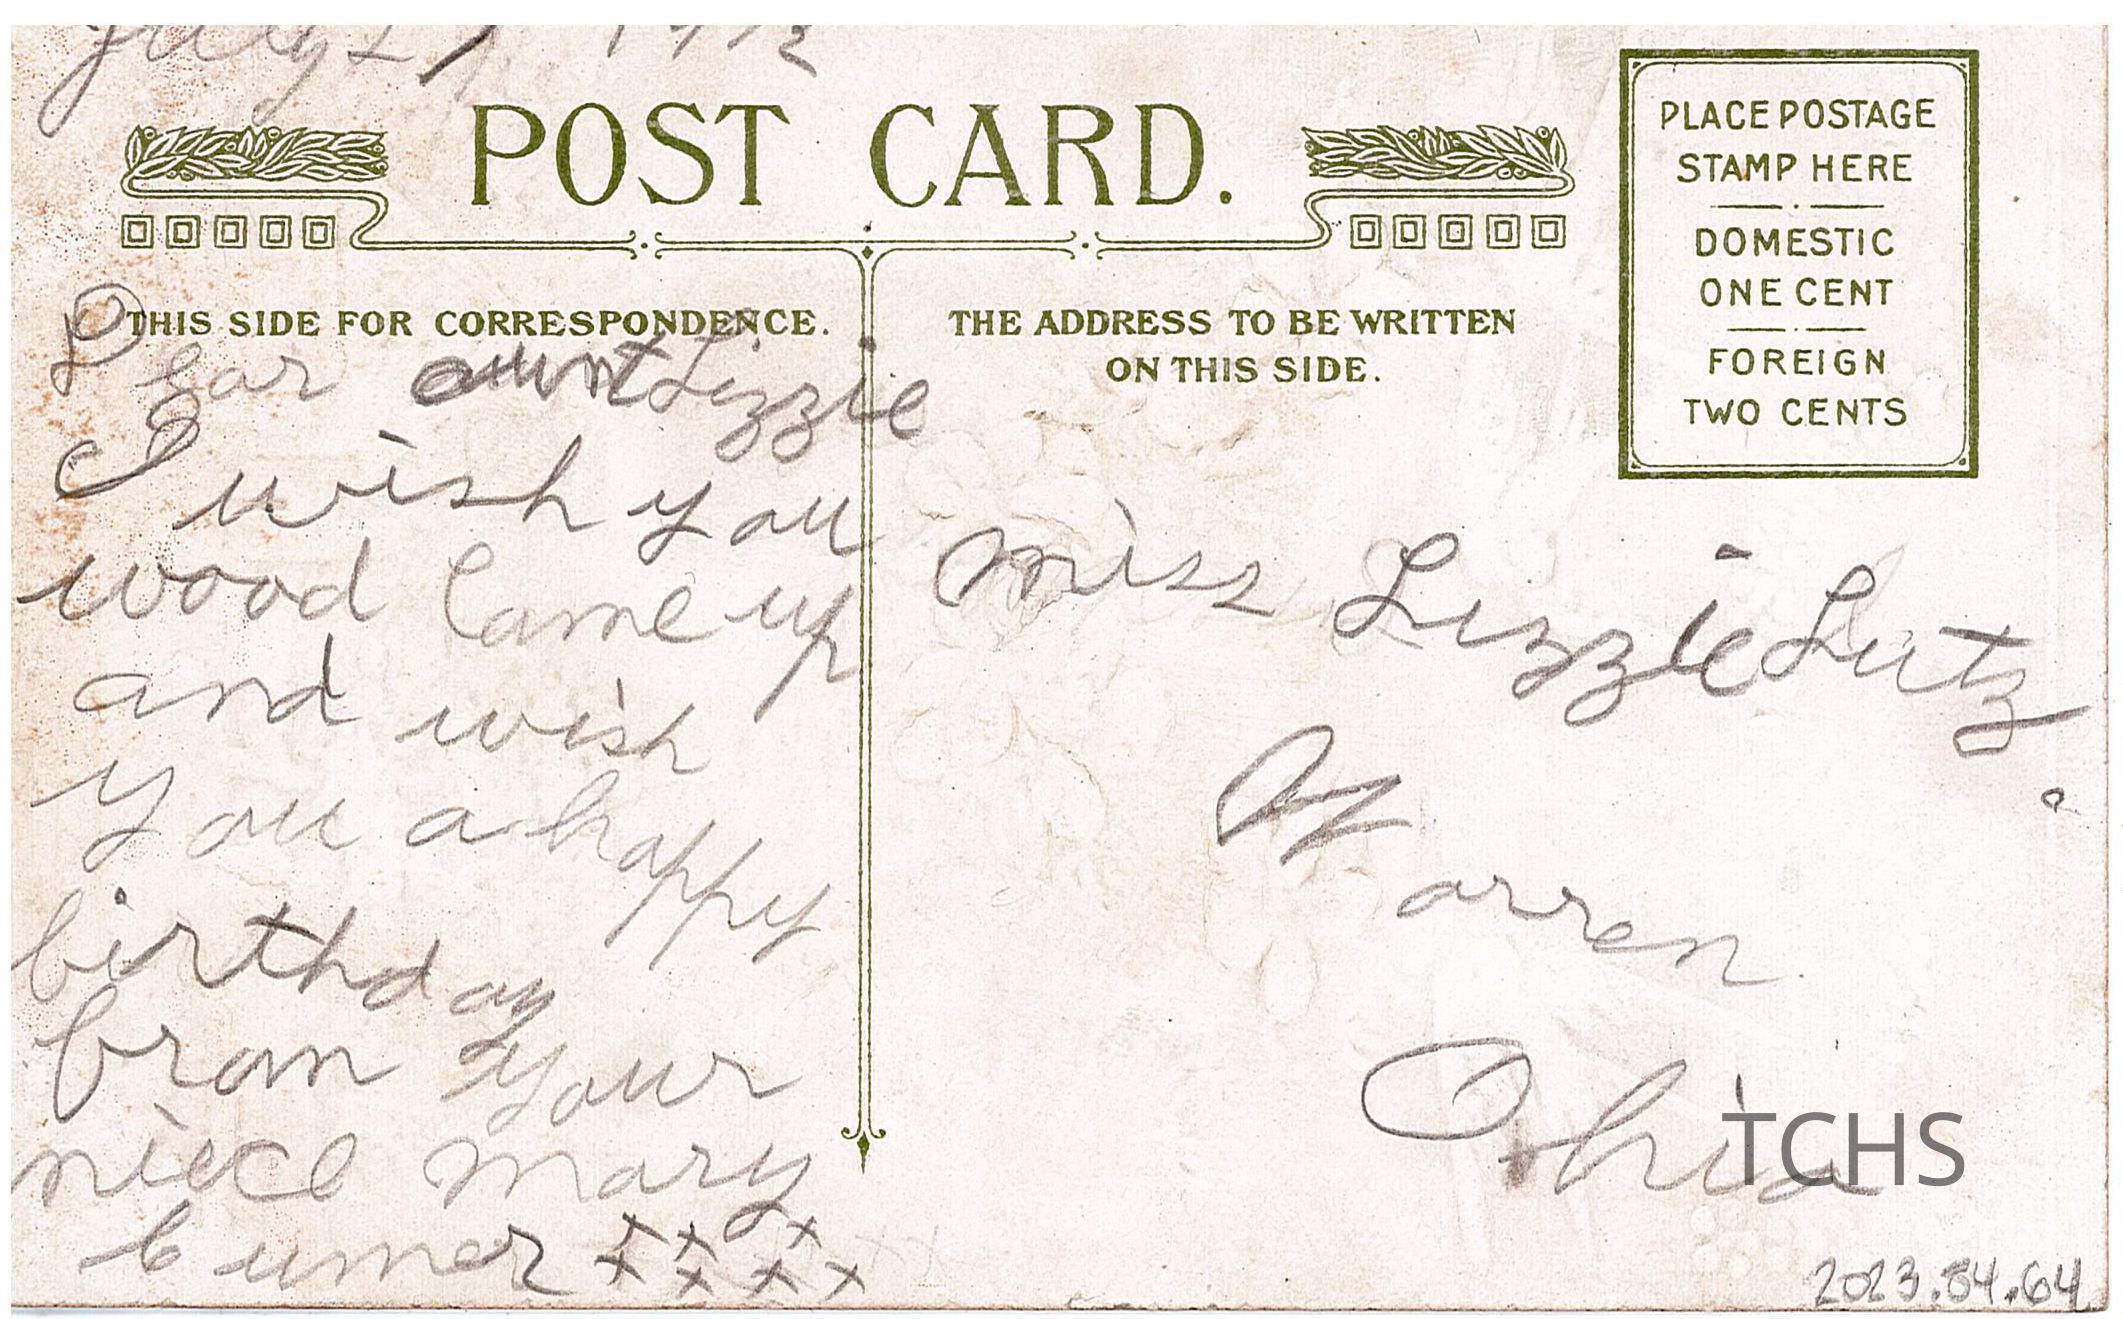 July 21 1912
POST CARD.
PLACE POSTAGE
STAMP HERE
DOMESTIC
ONE CENT
FOREIGN
TWO CENTS
THIS SIDE FOR CORRESPONDENCE.
Dear aunt Lizzie
I wish you
wood Came up
and wish
you a happy
birthday
from your
niece Mary
x x x
x x x x
THE ADDRESS TO BE WRITTEN
ON THIS SIDE.
Miss Lizzie Lutz
Warren
Ohio
TCHS
2023.54.64